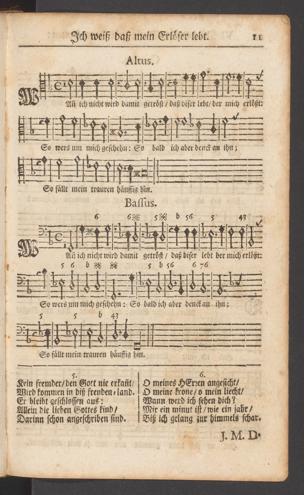 Ich weiß daß mein Erlöser lebt. 11
Altus.
WAñ ich nicht wird damit getröst / daß diser lebt / der mich erlößt:
So wers um mich geschehn: So bald ich aber denck an ihn;
So fällt mein trauren häuffig hin.
Bassus.
6 6 5 b 56 5 43
WAñ ich nicht wird damit getröst / daß diser lebt / der mich erlößt:
5 b 6 b 56 6 76
So wers um mich geschehn: So bald ich aber denck an ihn;
5 b 43
So fällt mein trauren häuffig hin.
5.
Kein fremder / den Gott nie erkañt /
Wird kommen in diß freuden-land.
Er bleibt geschlossen aus:
Allein die lieben Gottes kind /
Darinn schon angeschriben sind.
6.
O meines HErren angesicht /
O meine krone / o mein liecht /
Wann werd ich sehen dich?
Mir ein minut ist / wie ein jahr /
Biß ich gelang zur himmels schar.
J. M. D.